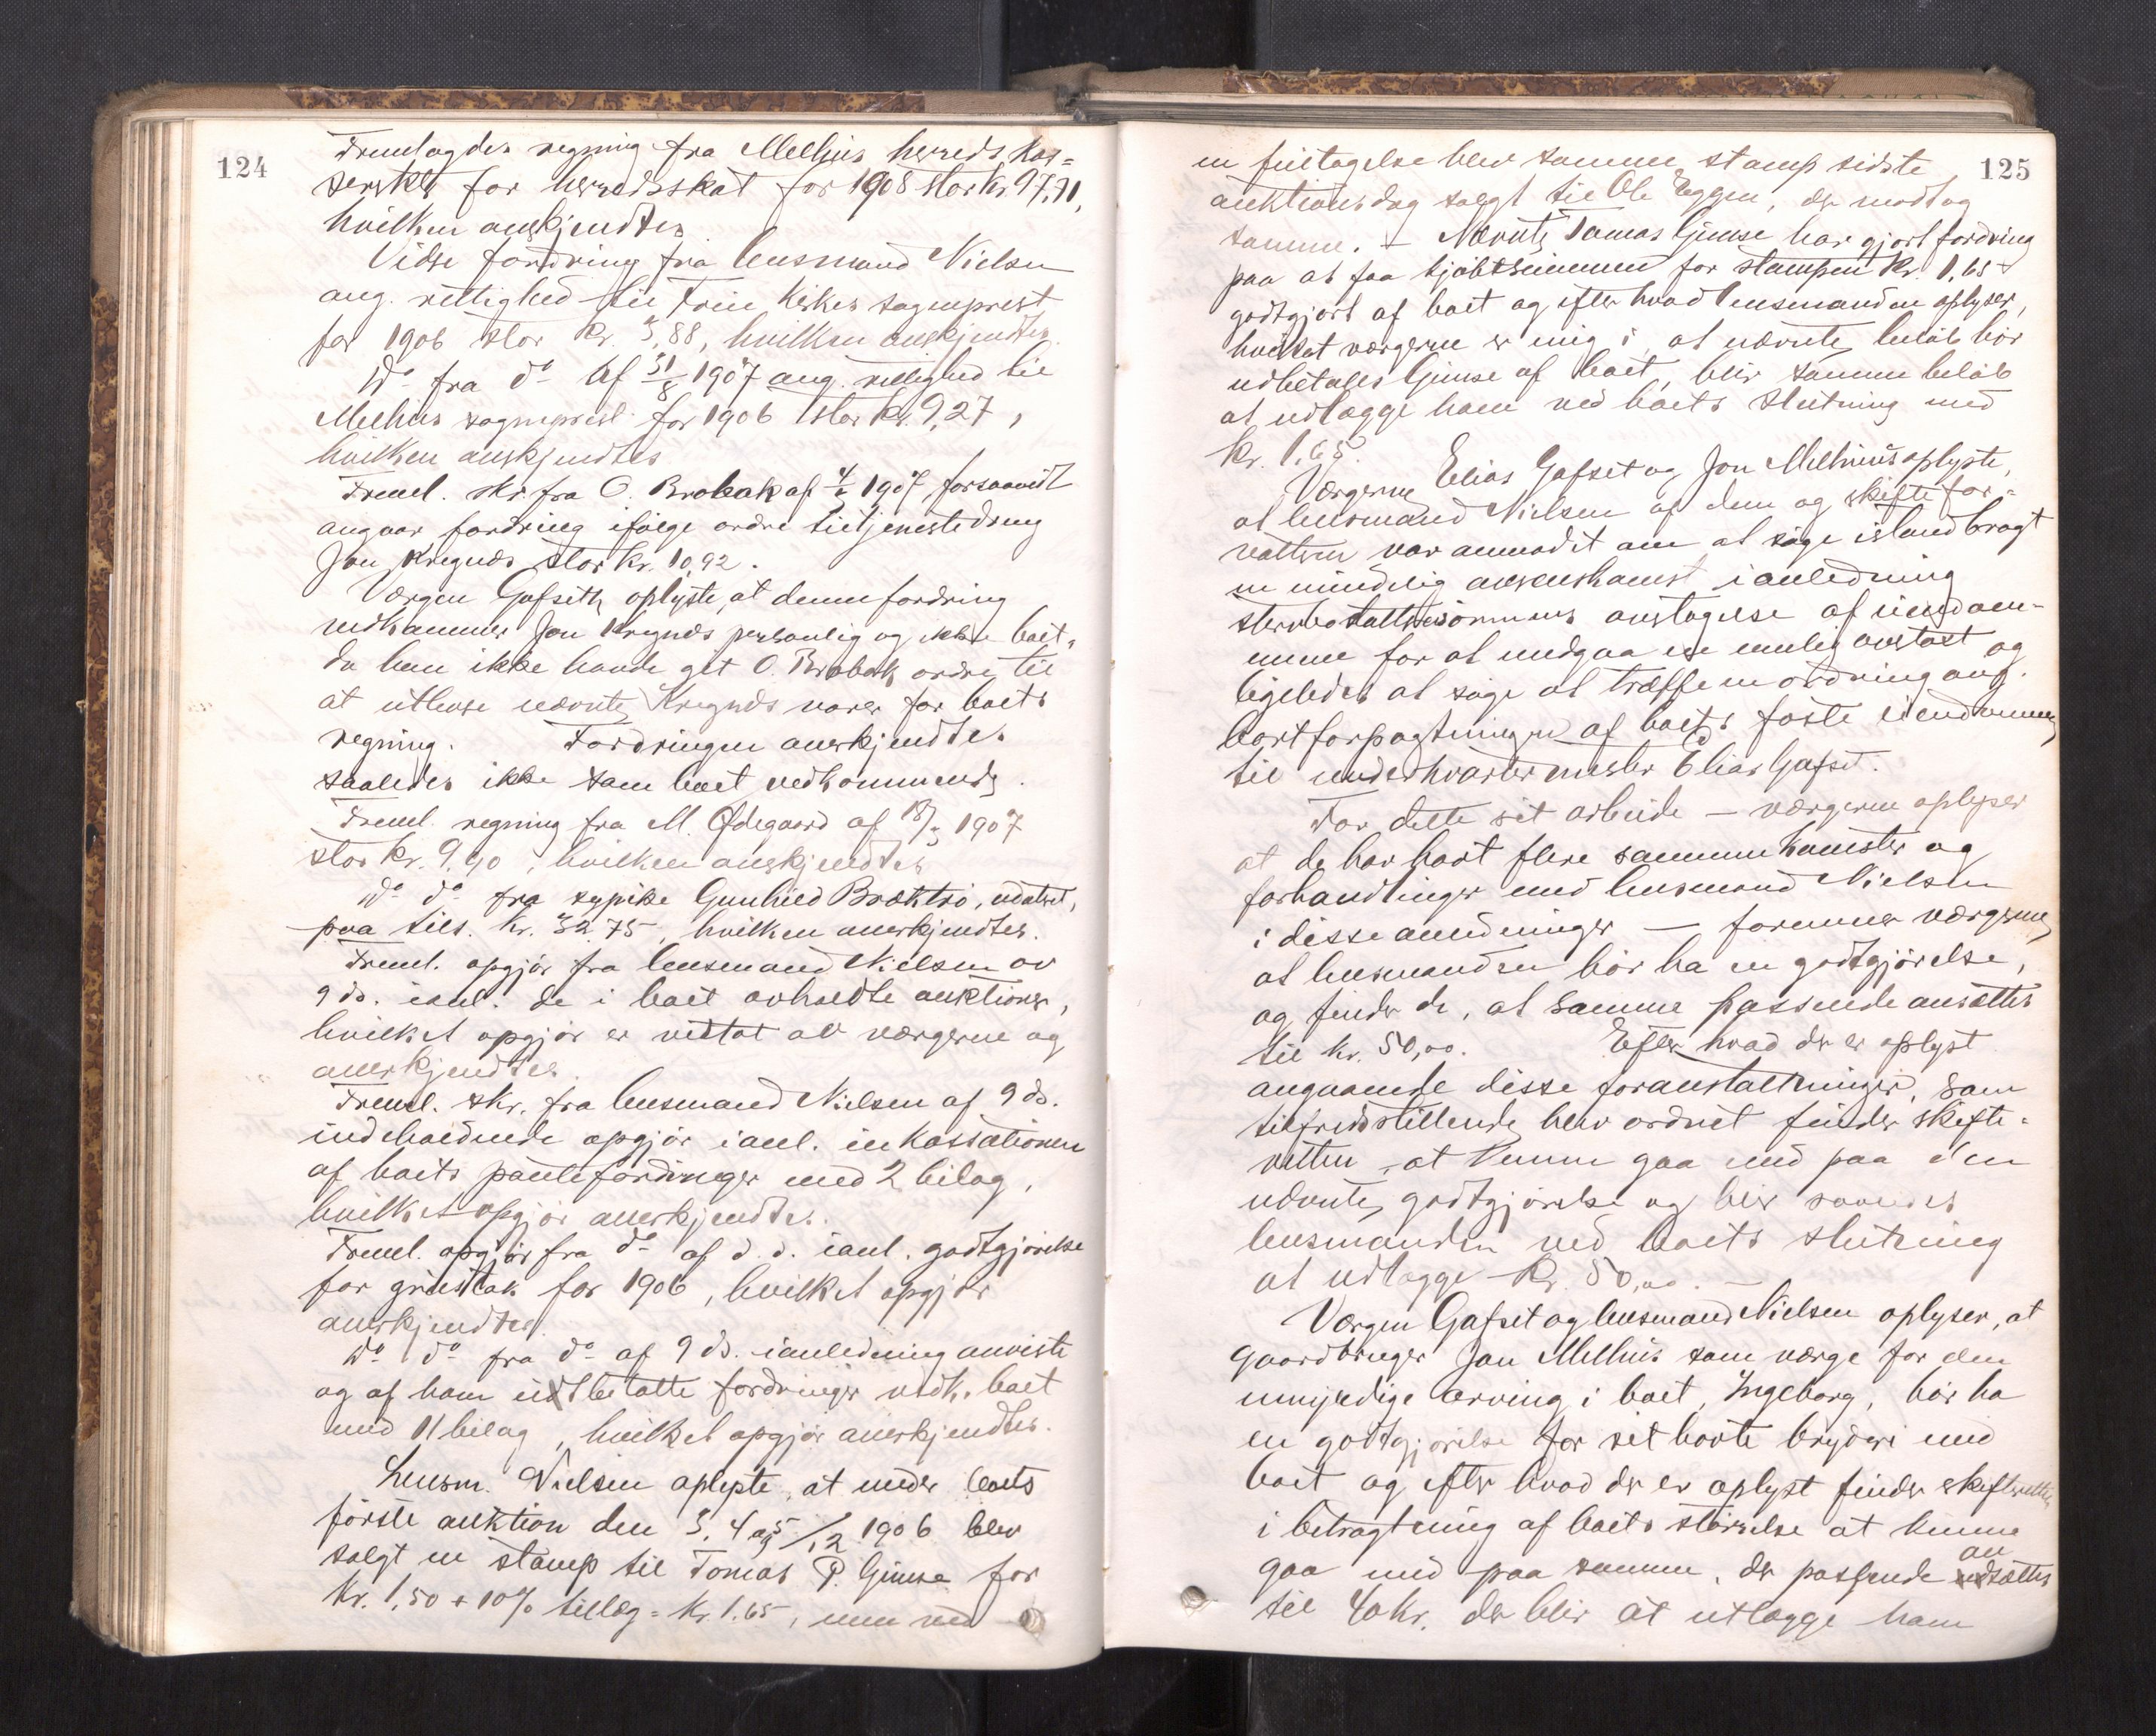 124
Fremlagdes regning fra Melhus herreds kas=
sererske for herredsskat for 1908 stor kr. 97,71,
hvilken anerkjendtes
Vidse fordring fra lensmand Nielsen
ang. rettighed til kirkes sogneprest
for 1906 stor kr. 3,88, hvilken anerkjendtes.
Do fra do af 31/8 1907 ang. rettighed til
Melhus sogneprest for 1906 stor kr. 9,27,
hvilken anerkjendtes
Freml. skr. fra O. Brobak af 1907, forsaavidt
angaar fordring ifølge ordre til tjenestedreng
Jon Kregnes stor kr. 10,92.
Værgen Gafseth oplyste, at denne fordring
vedkommer Jon Kregnes personlig og ikke boet,
da han ikke havde get O. Brobak ordre til
at utlevere nævnte Kregnes varer for boets
regning. Fordringen anerkjendtes
saaledes ikke som boet vedkommende.
Freml. regning fra M. Ødegaard af 18/3 1907
stor kr. 9,90, hvilken anerkjendtes
Do do fra sypike Gunhild Bræktrø, udateret,
paa tils. kr. 32,75, hvilken anerkjendtes.
Freml. opgjør fra lensmand Nielsen av
9 ds. ianl. de i boet avholdte auktioner,
hvilket opgjør er vedtat av værgerne og
anerkjendtes.
Freml. skr. fra lensmand Nielsen af 9 ds.
indeholdende opgjør ianl. inkassationen
af boets pantefordringer med 2 bilag,
hvilket opgjør anerkjendtes.
Freml. opgjør fra do af d. d. ianl. godtgjørelse
for for 1906, hvilket opgjør
anerkjendtes
Do do fra do af 9 ds. ianledning anviste
og af ham udbetalte fordringer vedk. boet
med 11 bilag, hvilket opgjør anerkjendtes.
Lensm. Nielsen oplyste, at under boets
første auktion den 3. 4 og 5/12 1906 blev
solgt en stamp til Tomas P. Gimse for
kr. 1,50 + 10% tillæg = kr. 1.65, men ved
125
en feiltagelse blev samme stamp sidste
auktionsdag solgt til Ole Eggen, der modtog
samme. - Nævnte Tomas Gimse har gjort fordring
paa at faa kjøbesummen for stampen kr. 1,65
godtgjort af boet og efter hvad lensmanden oplyser,
hvilket værgerne er enig i, at nævnte beløb bør
udbetales Gimse af boet, blir samme beløb
at udlægge ham ved boets slutning med
kr. 1.65.
Værgerne Elias Gafset og Jon Melhuus oplyste,
at lensmand Nielsen af dem og skiftefor=
valteren var anmodet om at søge istandbragt
en mindelig overenskomst ianledning
sterbo antagelse af eiendom-
mene for at undgaa en mulig og
ligeledes at søge at træffe en ordning ang.
bortforpagtningen af boets faste eiendomme
til underkvartermester Elias Gafset.
For dette sit arbeide - værgerne oplyser
at de har havt flere sammenkomster og
forhandlinger med lensmand Nielsen
i disse anledninger - formener værgerne
at lensmanden bør ha en godtgjørelse,
og finder de, at samme passende ansættes
til kr. 50,00. Efter hvad der er oplyst
angaaende disse foranstaltninger, som
tilfredsstillende blev ordnet finder skifte=
retten at kunne gaa med paa den
nævnte godtgjørelse og blir saaledes
lensmanden ved boets slutning
at udlægge kr. 50,00. -
Værgen Gafset og lensmand Nielsen oplyser, at
gaardbruger Jon Melhuus som værge for den
umyndige arving i boet, Ingeborg, bør ha
en godtgjørelse for sit havte bryderi med
boet og efter hvad der er oplyst finder skifteretten
i betragtning af boets størrelse at kunne
gaa med paa samme, der passende ansættes
til 40 kr. der blir at utlægge ham